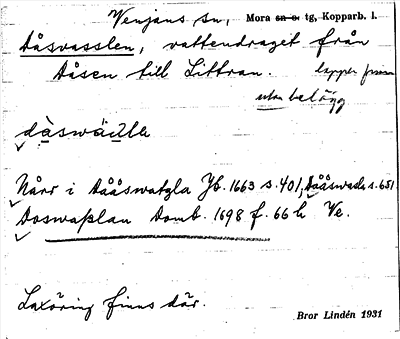 Venjans sn, Mora sn o. tg, Kopparb. l.
Dåsvasslen, vattendraget från
Dåsen till Littran. lapper fr
utan belägg
dåswäd̲la
Nårr i Dååswatzla Jb. 1663 s. 401, Dååswadz s. 651
Doswaßlan Domb. 1698 f. 66 h Ve.
Laxöring finns där.
Bror Lindén 1931